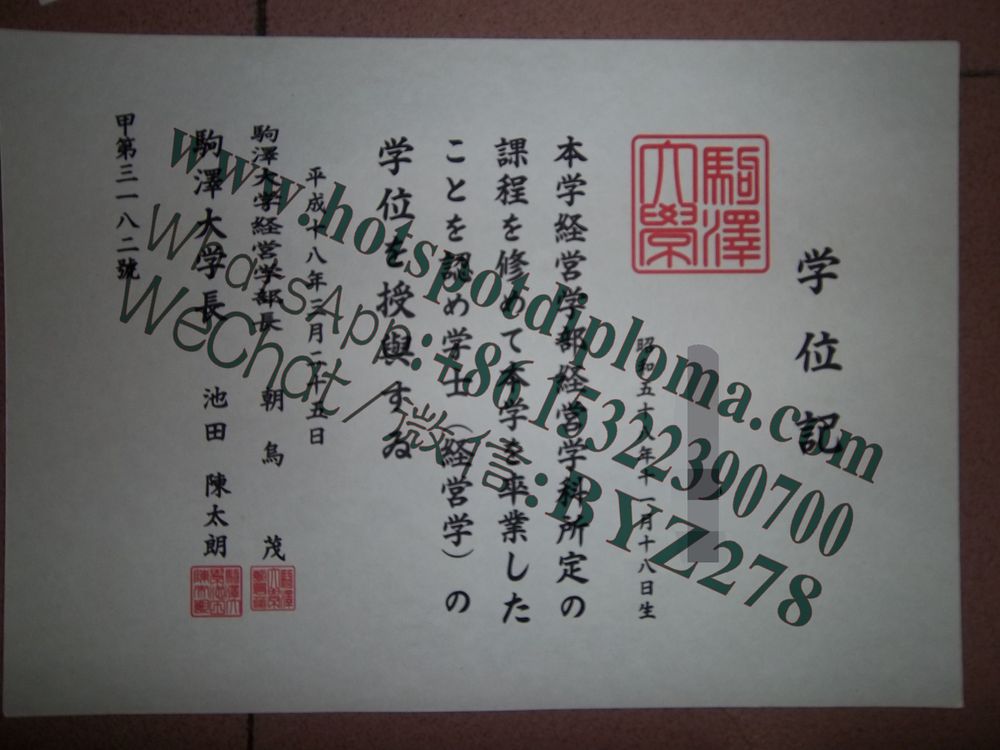 学位記
駒澤大學
昭和五十八年十一月十八日生
本学経営学部経営学科所定の
課程を修めて本学を卒業した
ことを認め学士（経営学）の
学位を授與する
平成十八年三月二十五日
駒澤大学経営学部長 朝鳥 茂
駒澤大学長 池田 陳太朗
甲第三一八二號
www.hotspotdiploma.com
WhatsApp:+8615322390700
WeChat/微信:BYZ278